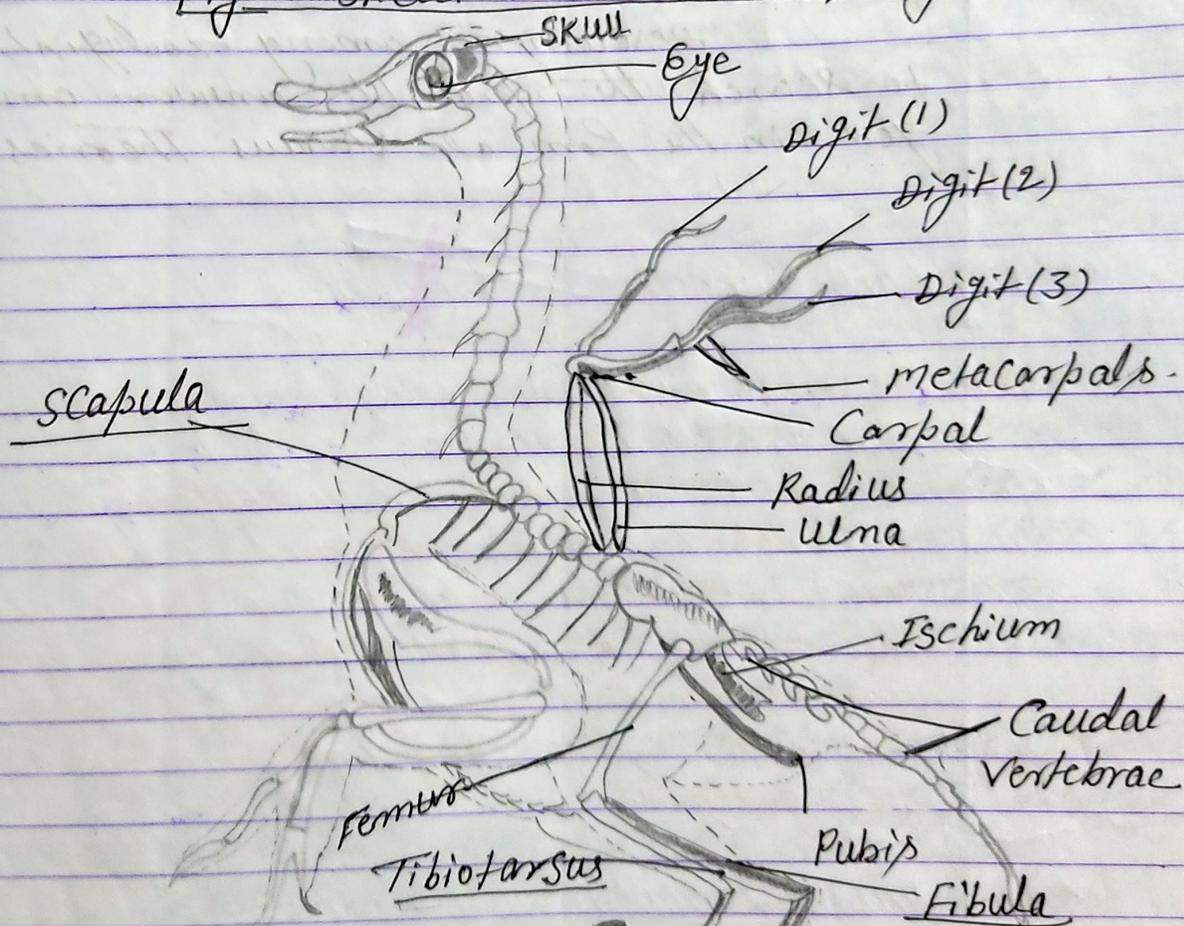 Skull
Eye
Digit (1)
Digit (2)
Digit (3)
metacarpals.
Carpal
Scapula
Radius
Ulna
Ischium
Caudal
Vertebrae
Femur
Pubis
Tibiotarsus
Fibula